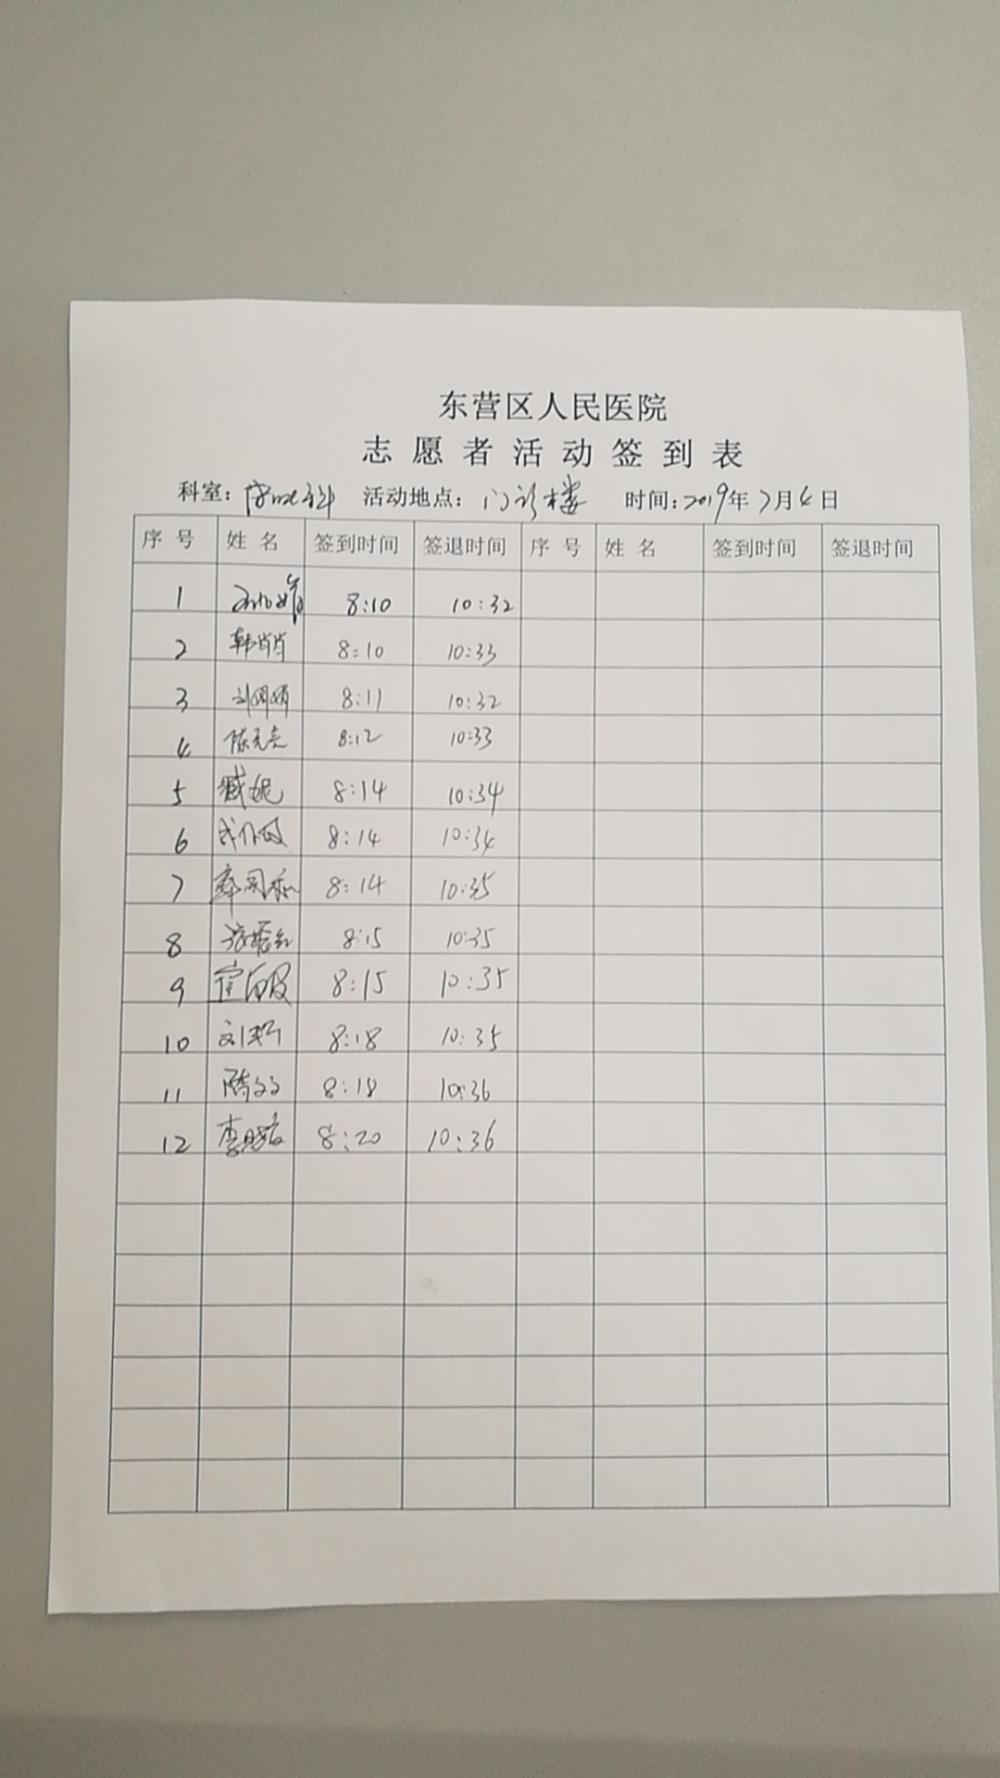 东营区人民医院
志愿者活动签到表
科室: 活动地点: 门诊楼 时间: 2019年7月4日
序号 姓名 签到时间 签退时间 序号 姓名 签到时间 签退时间
1 8:10 10:32
2 韩肖肖 8:10 10:33
3 8:11 10:32
4 8:12 10:33
5 臧妮 8:14 10:34
6 8:14 10:34
7 8:14 10:35
8 8:15 10:35
9 8:15 10:35
10 8:18 10:35
11 8:18 10:36
12 8:20 10:36